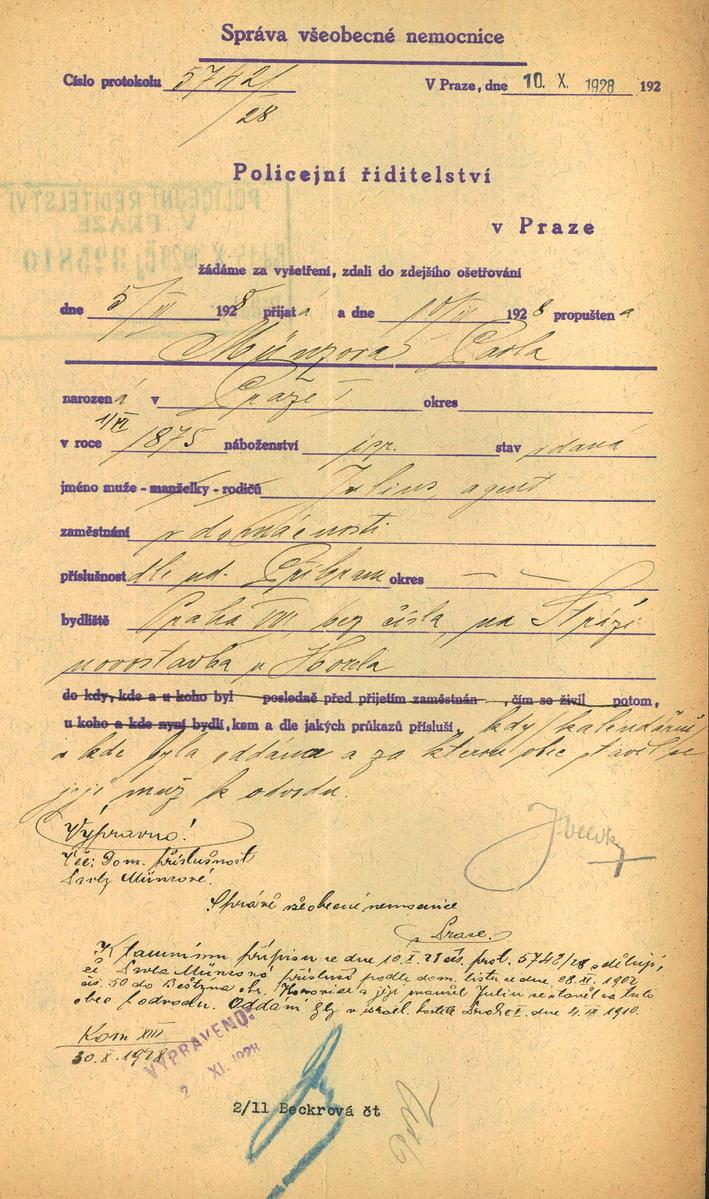 Správa všeobecné nemocnice
Číslo protokolu 5742/28
V Praze, dne 10. X. 1928 192
Policejní řiditelství
v Praze
POLICEJNÍ ŘEDITELSTVÍ
V PRAZE
žádáme za vyšetření, zdali do zdejšího ošetřování
dne 5/ 1928 přijatá a dne 10/ 1928 propuštěna
Münzová Pavla
narozená v Praze I okres
1/VI
v roce 1875 náboženství stav vdaná
jméno muže - manželky - rodičů Julius, agent
zaměstnání v domácnosti
příslušnost dle ud. Příbram okres — —
bydliště Praha VIII, bez čísla, na Stráži
novostavba u Horla
do kdy, kde a u koho byl posledně před přijetím zaměstnán , čím se živil potom,
u koho a kde nyní bydlí, kam a dle jakých průkazů přísluší, kdy (kalendářně)
a kde byla oddána a za kterou obec stavěl se
její muž k odvodu.
Výpravno!
Věc: Dom. příslušnost
Pavly Münzové.
Správě všeobecné nemocnice
v Praze.
K tamnímu přípisu ze dne 10.X.28 čís. prot. 5742/28 sděluji,
že Pavla Münzová přísluší podle dom. listu ze dne 28.II. 1902
čís. 50 do okr. a její manžel Julius se stavěl za tuto
obec k odvodu. Oddáni byli v israel. kostele Praha I. dne 4. 1910.
Kom XIII
30.X.1928
VYPRAVENO:
2 XI. 1928
2/11 Beckrová čt